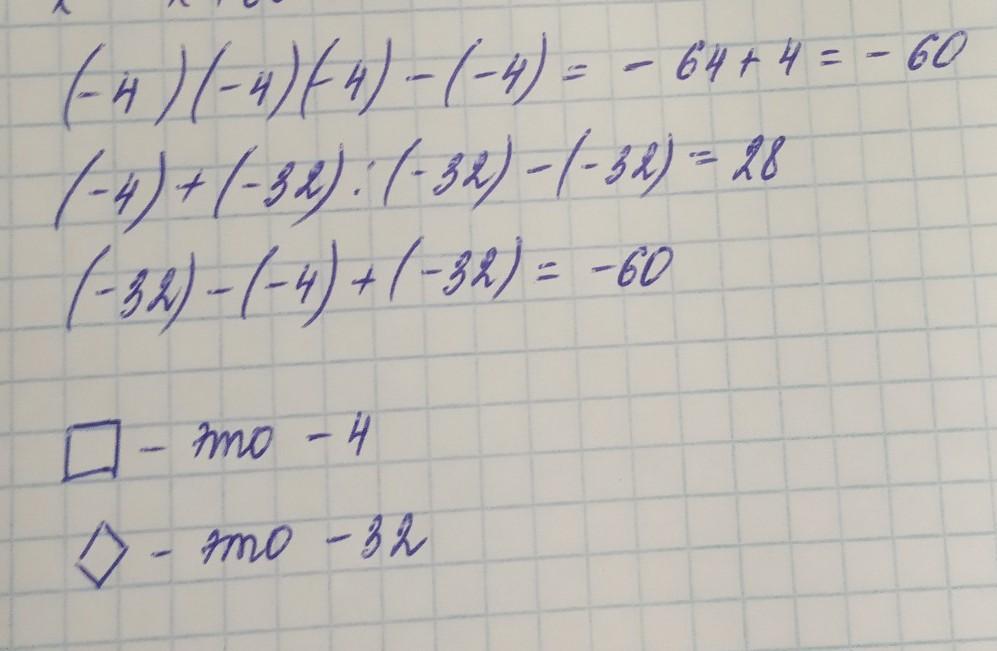 (-4)(-4)(-4)-(-4)= - 64+4=-60
(-4)+(-32):(-32)-(-32)=28
(-32)-(-4)+(-32)= -60
- это -4
- это -32